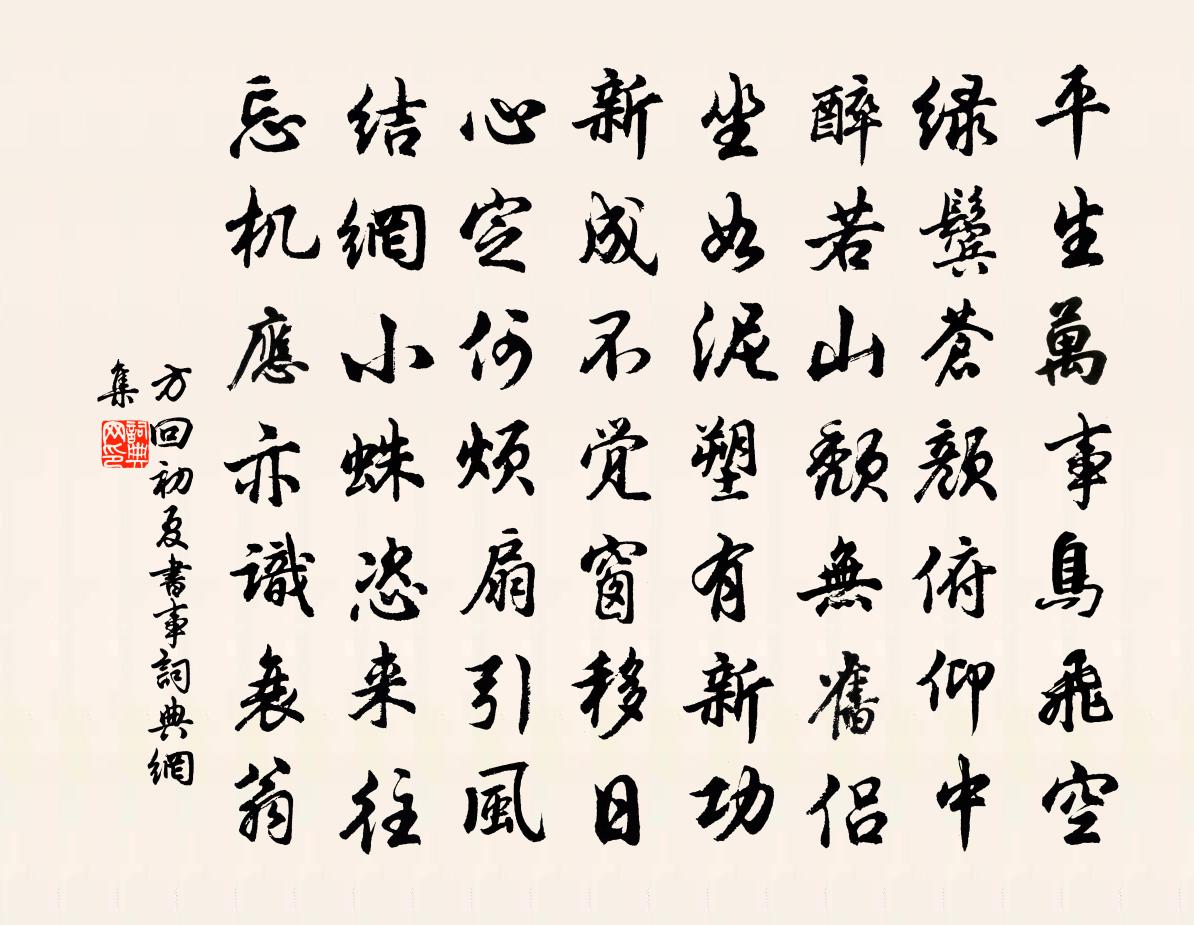 平生萬事鳥飛空
绿鬓蒼顔俯仰中
醉若山颓無舊侣
坐如泥塑有新功
新成不觉窗移日
心定何烦扇引風
结網小蛛恣来往
忘机應亦識衰翁
方回初夏書事詞典網
集
詞典网印